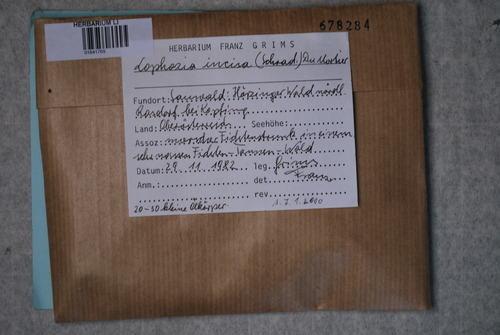 HERBARIUM LI
678284
HERBARIUM FRANZ GRIMS
Lophozia incisa (Schrad.) Dumortier
Fundort: Sauwald: Härzinger Wald nördl.
bei Kopfing
Land: Oberösterreich Seehöhe:
Assoz: morscher Fichtenstrunk in einem
sehr nassen Fichten-Tannen-Wald
Datum: 29. 11. 1982 leg. Grims
Anm.: det. Franz
rev.
20-30 kleine Ölkörper
1. 7. 1. 2000